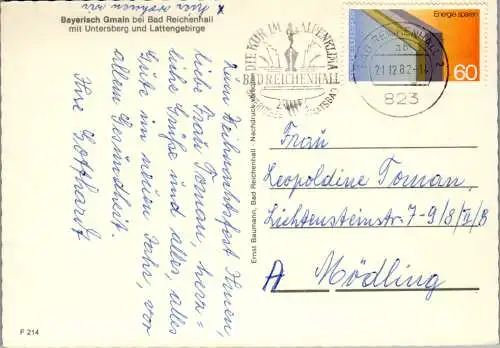 Bayerisch Gmain bei Bad Reichenhall
mit Untersberg und Lattengebirge
x hier wohnen wir
Zum Weihnachtsfest Ihnen,
liebe Frau Toman, herz=
liche Grüße und alles, alles
Gute im neuen Jahr, vor
allem Gesundheit.
Ihre Gotthardt
F 214
Ernst Baumann, Bad Reichenhall - Nachdruck
DIE KUR IM ALPENKLIMA
BAD REICHENHALL
STAATSBAD
BAD REICHENHALL 2
21.12.82
823
Energie sparen
DEUTSCHE BUNDESPOST
60
Frau
Leopoldine Toman,
Lichtensteinstr. 7-9/8/2/8
A Mödling